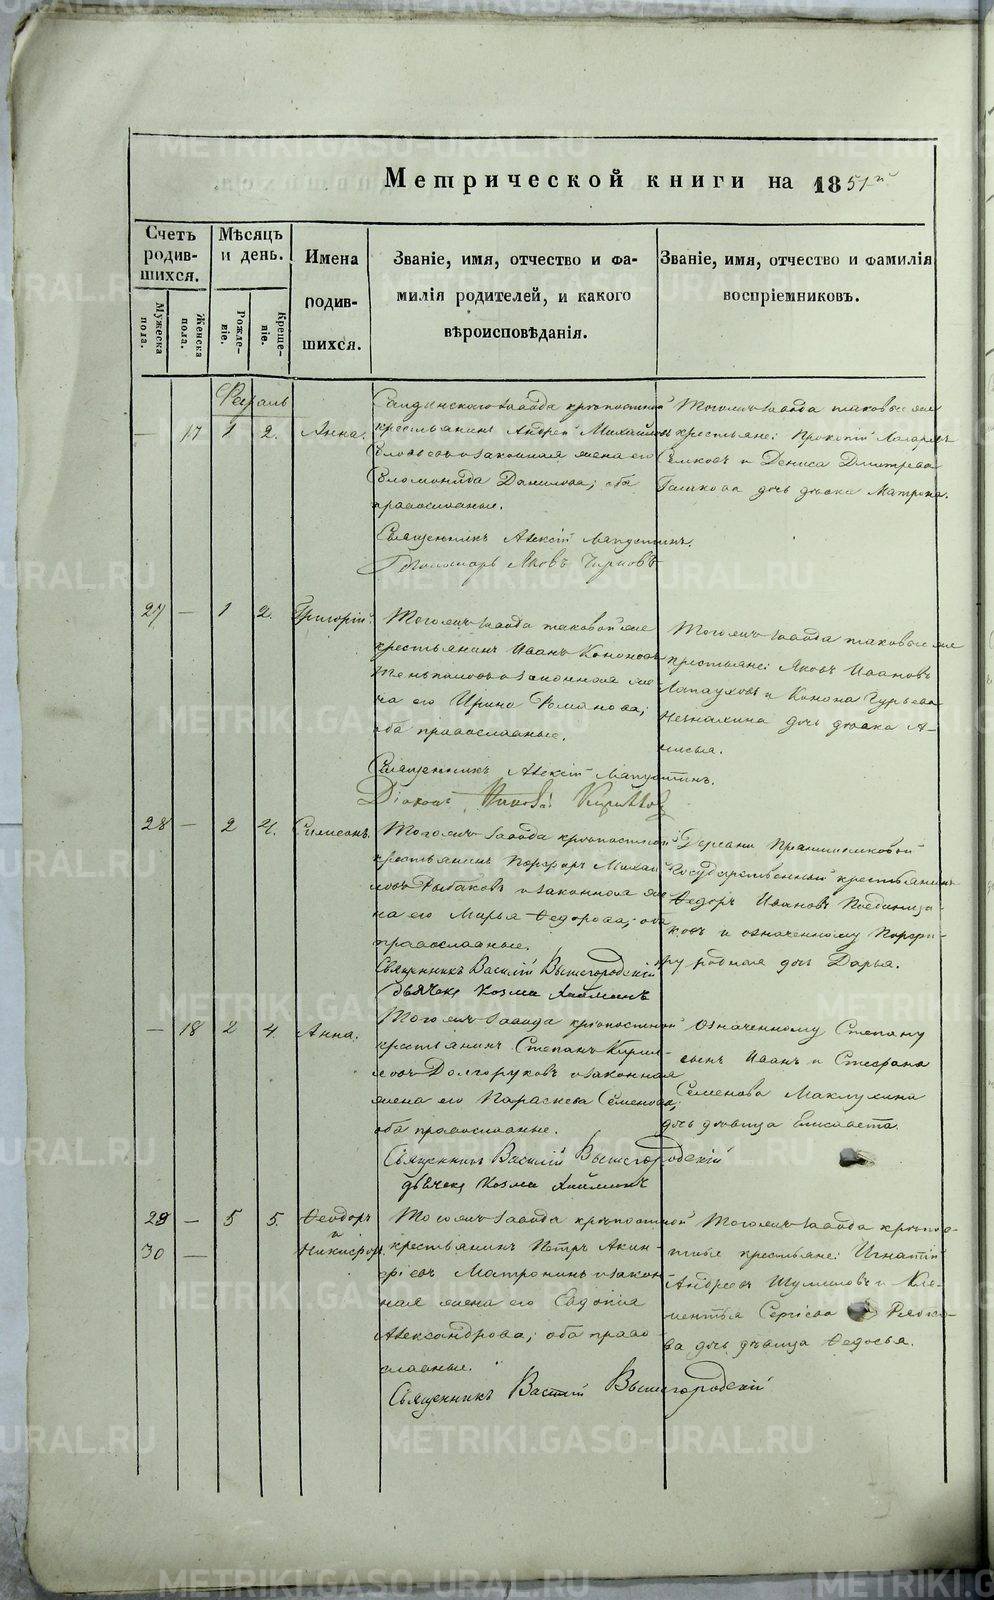 Метрической книги на 1851й
Счетъ родившихся.
Мѣсяцъ и день.
Имена родившихся.
Званіе, имя, отчество и фамилія родителей, и какого вѣроисповѣданія.
Званіе, имя, отчество и фамилія воспріемниковъ.
Мужеска пола.
Женска пола.
Рожденіе.
Крещеніе.
Февраль
— 17 1 2. Анна.
Салдинскаго завода крѣпостной
крестьянинъ Андрей Михайловъ
и законная жена его
Соломонида Данилова; оба
православные.
Священникъ Алексій Лапустинъ.
Пономарь Яковъ
Тогожъ завода таковые же
крестьяне: Прокопій Лазаревъ
и Дениса Дмитрева
дочь дѣвка Матрона.
27 — 1 2. Григорій.
Тогожъ завода таковой же
крестьянинъ Иванъ Кононовъ
и законная же-
на его Ирина Романова;
оба православные.
Священникъ Алексій Лапустинъ.
Діаконъ
Тогожъ завода таковые же
крестьяне: Яковъ Ивановъ
и Конона Гурьева
дочь дѣвка А-
нисья.
28 — 2 4. Симеонъ.
Тогожъ завода крѣпостной
крестьянинъ Порфиръ Михай-
ловъ Рыбаковъ и законная же-
на его Марья Федорова; оба
православные.
Священникъ Василій Вышегородскій
Дьячекъ Козма
Деревни
Государственный крестьянинъ
Федоръ Ивановъ
и означенному Порфи-
ру родная дочь Дарья.
— 18 2 4. Анна.
Тогожъ завода крѣпостной
крестьянинъ Степанъ Кирил-
ловъ Долгоруковъ и законная
жена его Параскева Семенова;
оба православные.
Священникъ Василій Вышегородскій
Дьячекъ Козма
Означенному Степану
сынъ Иванъ и Стефана
Семенова Маклухина
дочь дѣвица Елисавета.
29 — 5 5. Феодоръ
и
30 — Никифоръ.
Тогожъ завода крѣпостной
крестьянинъ Петръ Акин-
фіевъ Матронинъ и закон-
ная жена его Евдокія
Александрова; оба право-
славные.
Священникъ Василій Вышегородскій
Тогожъ завода крѣпос-
тные крестьяне: Игнатій
Андреевъ Шумиловъ и Кле-
ментья Сергѣева
дочь дѣвица Федосья.
METRIKI.GASO-URAL.RU